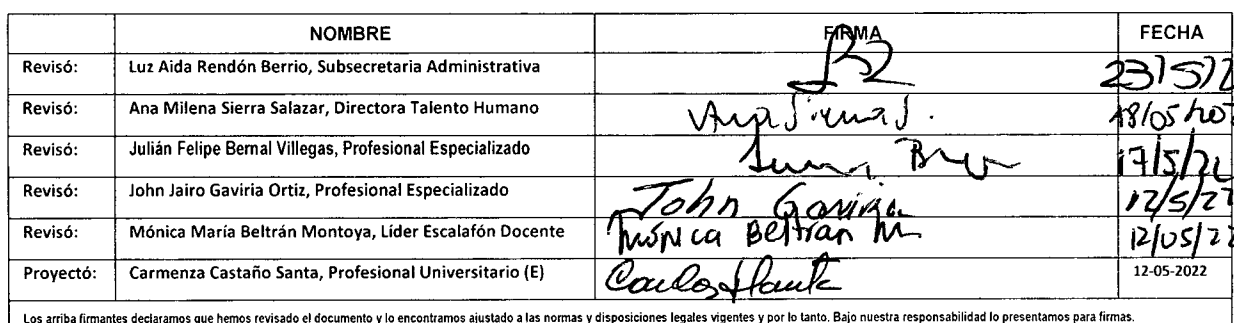 NOMBRE FIRMA FECHA
Revisó: Luz Aida Rendón Berrio, Subsecretaria Administrativa 23/5/22
Revisó: Ana Milena Sierra Salazar, Directora Talento Humano Ana Sierra S. 18/05/202
Revisó: Julián Felipe Bernal Villegas, Profesional Especializado 17/5/22
Revisó: John Jairo Gaviria Ortiz, Profesional Especializado John Gaviria 12/5/22
Revisó: Mónica María Beltrán Montoya, Líder Escalafón Docente Mónica Beltrán M. 12/05/22
Proyectó: Carmenza Castaño Santa, Profesional Universitario (E) 12-05-2022
Los arriba firmantes declaramos que hemos revisado el documento y lo encontramos ajustado a las normas y disposiciones legales vigentes y por lo tanto. Bajo nuestra responsabilidad lo presentamos para firmas.